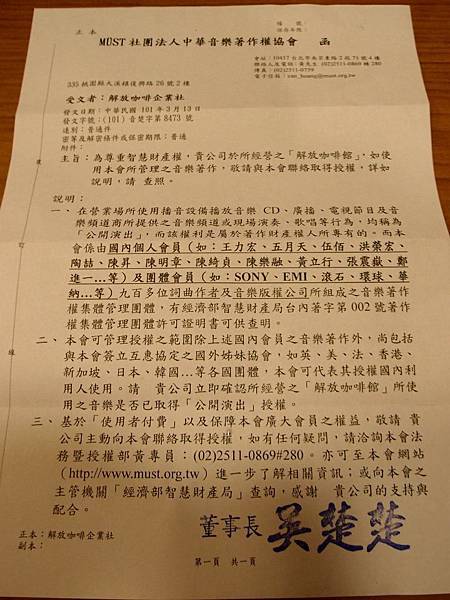 正本
檔　號：
保存年限：
MUST社團法人中華音樂著作權協會　函
會址：10457台北市南京東路2段71號4樓
聯絡人及電話：黃先生 (02)2511-0869轉280
傳真：(02)2511-0759
電子信箱：van_huang@must.org.tw
335 桃園縣大溪鎮復興路26號2樓
受文者：解放咖啡企業社
發文日期：中華民國101年3月13日
發文字號：(101)音楚字第8473號
速別：普通件
密等及解密條件或保密期限：普通
附件：
主旨：為尊重智慧財產權，貴公司於所經營之「解放咖啡館」，如使
用本會所管理之音樂著作，敬請與本會聯絡取得授權，詳如
說明，請　查照。
說明：
一、在營業場所使用播音設備播放音樂CD、廣播、電視節目及音
樂頻道商所提供之音樂頻道或現場演奏、歌唱等行為，均稱為
「公開演出」，而該權利是屬於著作財產權人所專有的。而本
會係由國內個人會員（如：王力宏、五月天、伍佰、洪榮宏、
陶喆、陳昇、陳明章、陳綺貞、陳樂融、黃立行、張震嶽、鄭
進一…等）及團體會員（如：SONY、EMI、滾石、環球、華
納…等）九百多位詞曲作者及音樂版權公司所組成之音樂著作
權集體管理團體，有經濟部智慧財產局台內著字第002號著作
權集體管理團體許可證明書可供查明。
二、本會可管理授權之範圍除上述國內會員之音樂著作外，尚包括
與本會簽立互惠協定之國外姊妹協會，如英、美、法、香港、
新加坡、日本、韓國…等各國團體，本會可代表其授權國內利
用人使用。請　貴公司立即確認所經營之「解放咖啡館」所使
用之音樂是否已取得「公開演出」授權。
三、基於「使用者付費」以及保障本會廣大會員之權益，敬請　貴
公司主動向本會聯絡取得授權，如有任何疑問，請洽詢本會法
務暨授權部黃專員：(02)2511-0869#280。亦可至本會網站
（http://www.must.org.tw）進一步了解相關資訊；或向本會之
主管機關「經濟部智慧財產局」查詢，感謝　貴公司的支持與
配合。
董事長 吳楚楚
正本：解放咖啡企業社
副本：
第一頁　共一頁
裝
訂
線